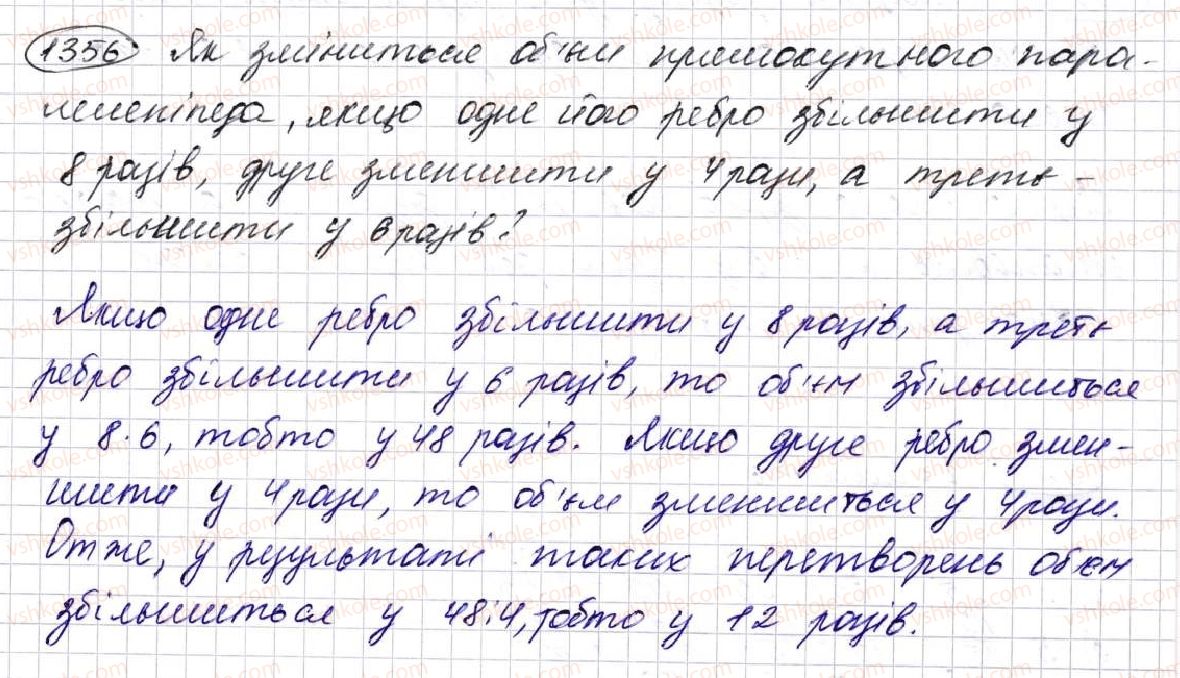 1356 Як зміниться об'єм прямокутного пара-
лелепіпеда, якщо одне його ребро збільшити у
8 разів, друге зменшити у 4 рази, а третє -
збільшити у 6 разів?
Якщо одне ребро збільшити у 8 разів, а третє
ребро збільшити у 6 разів, то об'єм збільшиться
у 8·6, тобто у 48 разів. Якщо друге ребро змен-
шити у 4 рази, то об'єм зменшиться у 4 рази.
Отже, у результаті таких перетворень об'єм
збільшиться у 48:4, тобто у 12 разів.